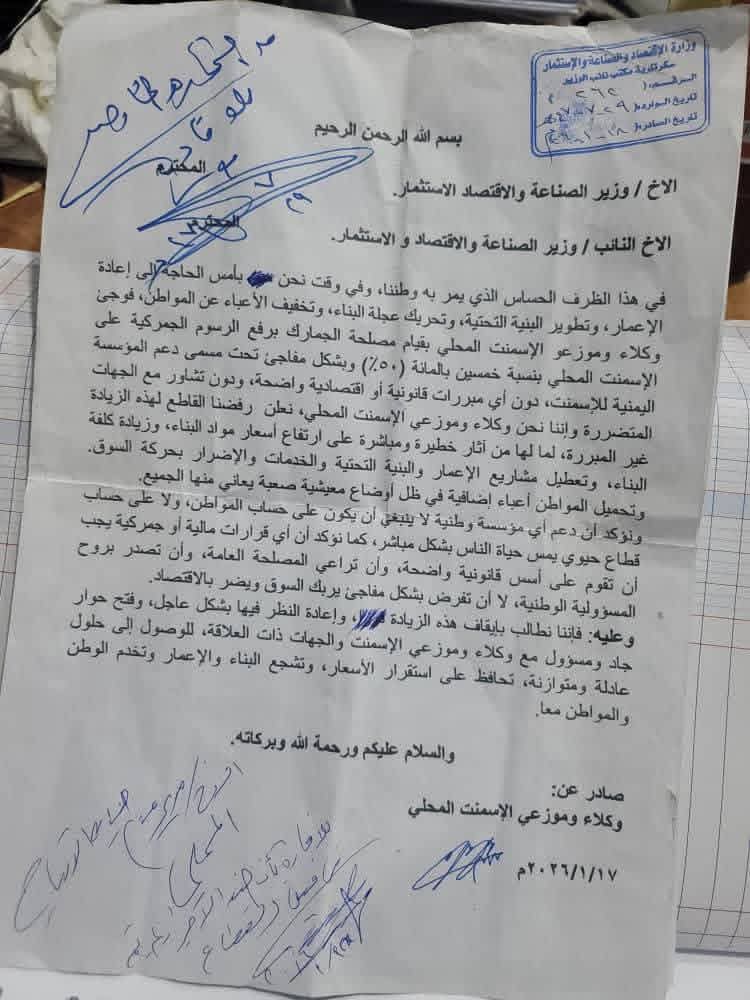 وزارة الاقتصاد والصناعة والاستثمار
سكرتارية مكتب نائب الوزير
الرقم: ( ٢٦٢ )
تاريخ الوارد:
تاريخ الصادر:
بسم الله الرحمن الرحيم
الاخ / وزير الصناعة والاقتصاد الاستثمار. المحترم
الاخ النائب / وزير الصناعة والاقتصاد و الاستثمار. المحترم
في هذا الظرف الحساس الذي يمر به وطننا، وفي وقت نحن بأمس الحاجة إلى إعادة
الإعمار، وتطوير البنية التحتية، وتحريك عجلة البناء، وتخفيف الأعباء عن المواطن، فوجئ
وكلاء وموزعو الإسمنت المحلي بقيام مصلحة الجمارك برفع الرسوم الجمركية على
الإسمنت المحلي بنسبة خمسين بالمائة (٥٠٪) وبشكل مفاجئ تحت مسمى دعم المؤسسة
اليمنية للإسمنت، دون أي مبررات قانونية أو اقتصادية واضحة، ودون تشاور مع الجهات
المتضررة وإننا نحن وكلاء وموزعي الإسمنت المحلي، نعلن رفضنا القاطع لهذه الزيادة
غير المبررة، لما لها من آثار خطيرة ومباشرة على ارتفاع أسعار مواد البناء، وزيادة كلفة
البناء، وتعطيل مشاريع الإعمار والبنية التحتية والخدمات والإضرار بحركة السوق.
وتحميل المواطن أعباء إضافية في ظل أوضاع معيشية صعبة يعاني منها الجميع.
ونؤكد أن دعم أي مؤسسة وطنية لا ينبغي أن يكون على حساب المواطن، ولا على حساب
قطاع حيوي يمس حياة الناس بشكل مباشر، كما نؤكد أن أي قرارات مالية أو جمركية يجب
أن تقوم على أسس قانونية واضحة، وأن تراعي المصلحة العامة، وأن تصدر بروح
المسؤولية الوطنية، لا أن تفرض بشكل مفاجئ يربك السوق ويضر بالاقتصاد.
وعليه: فإننا نطالب بإيقاف هذه الزيادة، وإعادة النظر فيها بشكل عاجل، وفتح حوار
جاد ومسؤول مع وكلاء وموزعي الإسمنت والجهات ذات العلاقة، للوصول إلى حلول
عادلة ومتوازنة، تحافظ على استقرار الأسعار، وتشجع البناء والإعمار وتخدم الوطن
والمواطن معا.
والسلام عليكم ورحمة الله وبركاته.
صادر عن:
وكلاء وموزعي الإسمنت المحلي
٢٠٢٦/١/١٧م